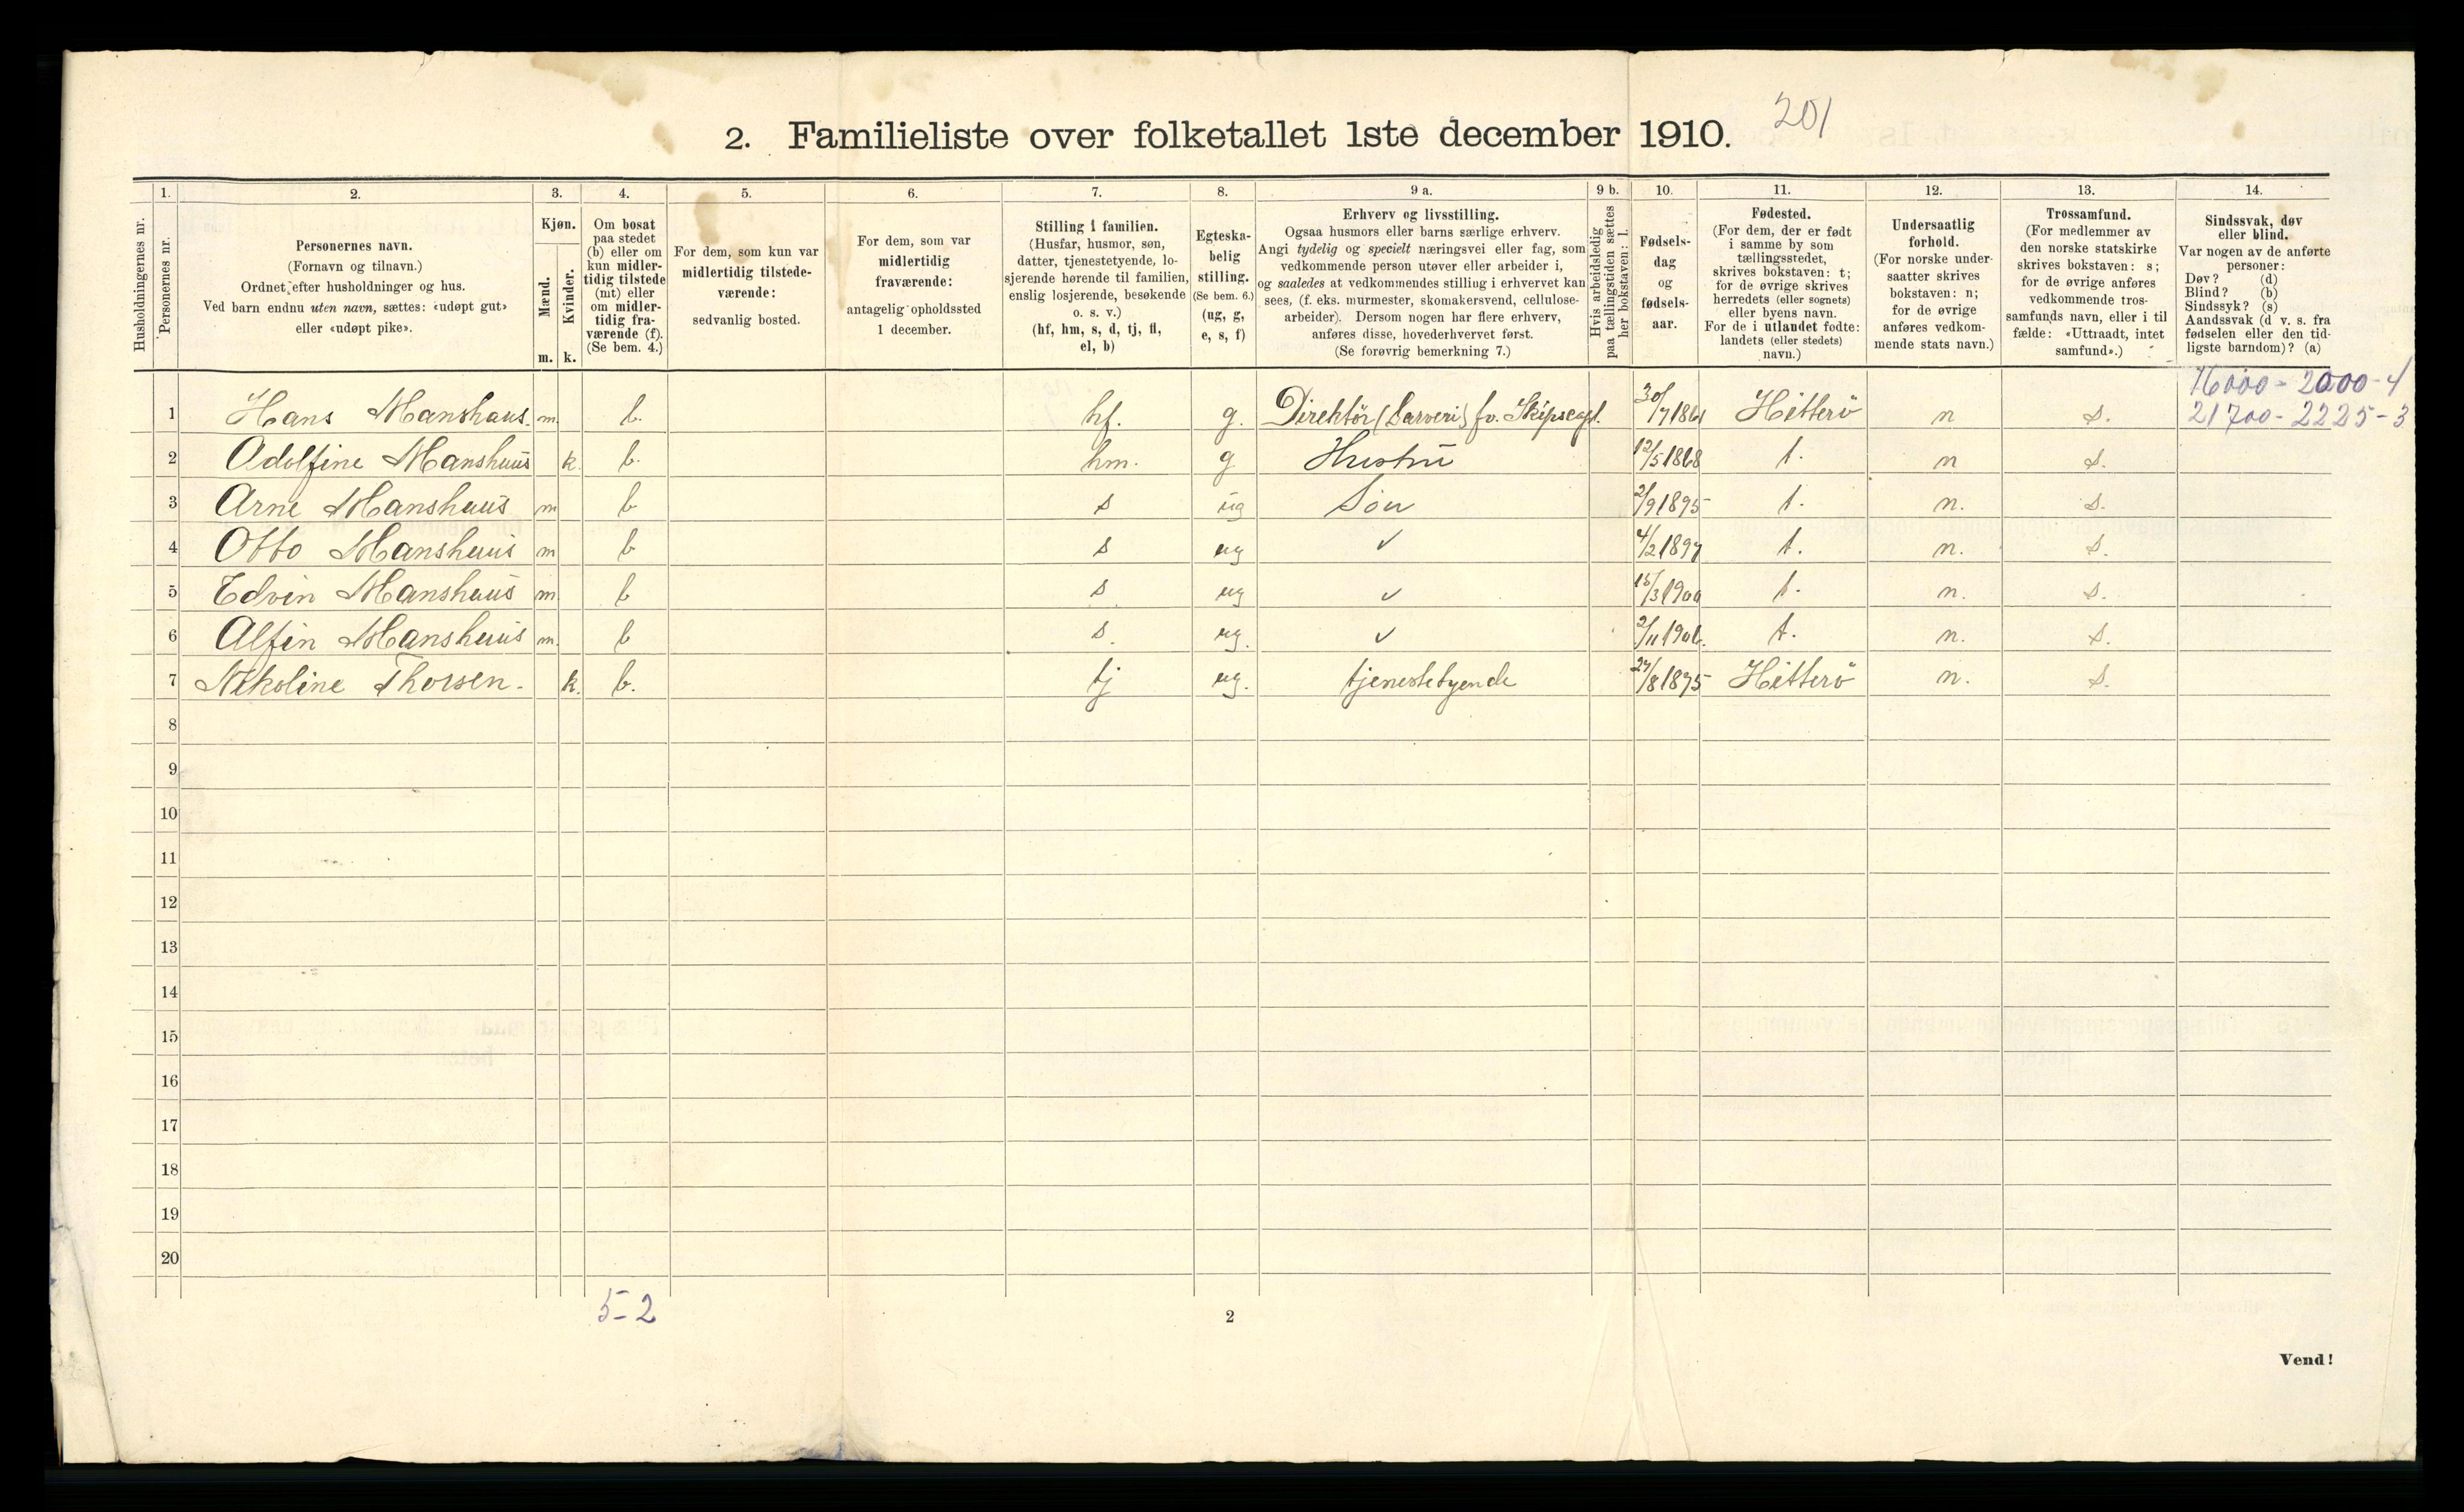 201
2. Familieliste over folketallet 1ste december 1910.
1. 2. 3. 4. 5. 6. 7. 8. 9 a. 9 b. 10. 11. 12. 13. 14.
Husholdningernes nr.
Personernes nr.
Personernes navn.
(Fornavn og tilnavn.)
Ordnet efter husholdninger og hus.
Ved barn endnu uten navn, sættes: «udøpt gut»
eller «udøpt pike».
Kjøn.
Mænd.
Kvinder.
m. k.
Om bosat
paa stedet
(b) eller om
kun midler-
tidig tilstede
(mt) eller
om midler-
tidig fra-
værende (f).
(Se bem. 4.)
For dem, som kun var
midlertidig tilstede-
værende:
sedvanlig bosted.
For dem, som var
midlertidig
fraværende:
antagelig opholdssted
1 december.
Stilling i familien.
(Husfar, husmor, søn,
datter, tjenestetyende, lo-
sjerende hørende til familien,
enslig losjerende, besøkende
o. s. v.)
(hf, hm, s, d, tj, fl,
el, b)
Egteska-
belig
stilling.
(Se bem. 6.)
(ug, g,
e, s, f)
Erhverv og livsstilling.
Ogsaa husmors eller barns særlige erhverv.
Angi tydelig og specielt næringsvei eller fag, som
vedkommende person utøver eller arbeider i,
og saaledes at vedkommendes stilling i erhvervet kan
sees, (f. eks. murmester, skomakersvend, cellulose-
arbeider). Dersom nogen har flere erhverv,
anføres disse, hovederhvervet først.
(Se forøvrig bemerkning 7.)
Hvis arbeidsledig
paa tællingstiden sættes
her bokstaven: l.
Fødsels-
dag
og
fødsels-
aar.
Fødested.
(For dem, der er født
i samme by som
tællingsstedet,
skrives bokstaven: t;
for de øvrige skrives
herredets (eller sognets)
eller byens navn.
For de i utlandet fødte:
landets (eller stedets)
navn.)
Undersaatlig
forhold.
(For norske under-
saatter skrives
bokstaven: n;
for de øvrige
anføres vedkom-
mende stats navn.)
Trossamfund.
(For medlemmer av
den norske statskirke
skrives bokstaven: s;
for de øvrige anføres
vedkommende tros-
samfunds navn, eller i til
fælde: «Uttraadt, intet
samfund».)
Sindssvak, døv
eller blind.
Var nogen av de anførte
personer:
Døv? (d)
Blind? (b)
Sindssyk? (s)
Aandssvak (d v. s. fra
fødselen eller den tid-
ligste barndom)? (a)
16000 - 2000 - 4
1 Hans Manshaus. m. b. hf. g. Direktör (Garveri) fv. Skipscapt. 30/7 1861 Hitterö n s. 21700 - 2225 - 3
2 Adolfine Manshaus k. b. hm. g Hustru 12/5 1868 t. n s.
3 Arne Manshaus m b s ug Søn 2/9 1895 t. n. s.
4 Otto Manshaus m b s ug ✓ 4/2 1897 t. n. s.
5 Edvin Manshaus m b s ug ✓ 15/3 1900 t. n. s.
6 Alfin Manshaus m. b s. ug. ✓ 2/11 1906. t. n. s.
7 Nikoline Thorsen. k. b. tj ug. tjenestetyende 27/8 1875 Hitterö n. s.
8
9
10
11
12
13
14
15
16
17
18
19
20
5-2
2
Vend!